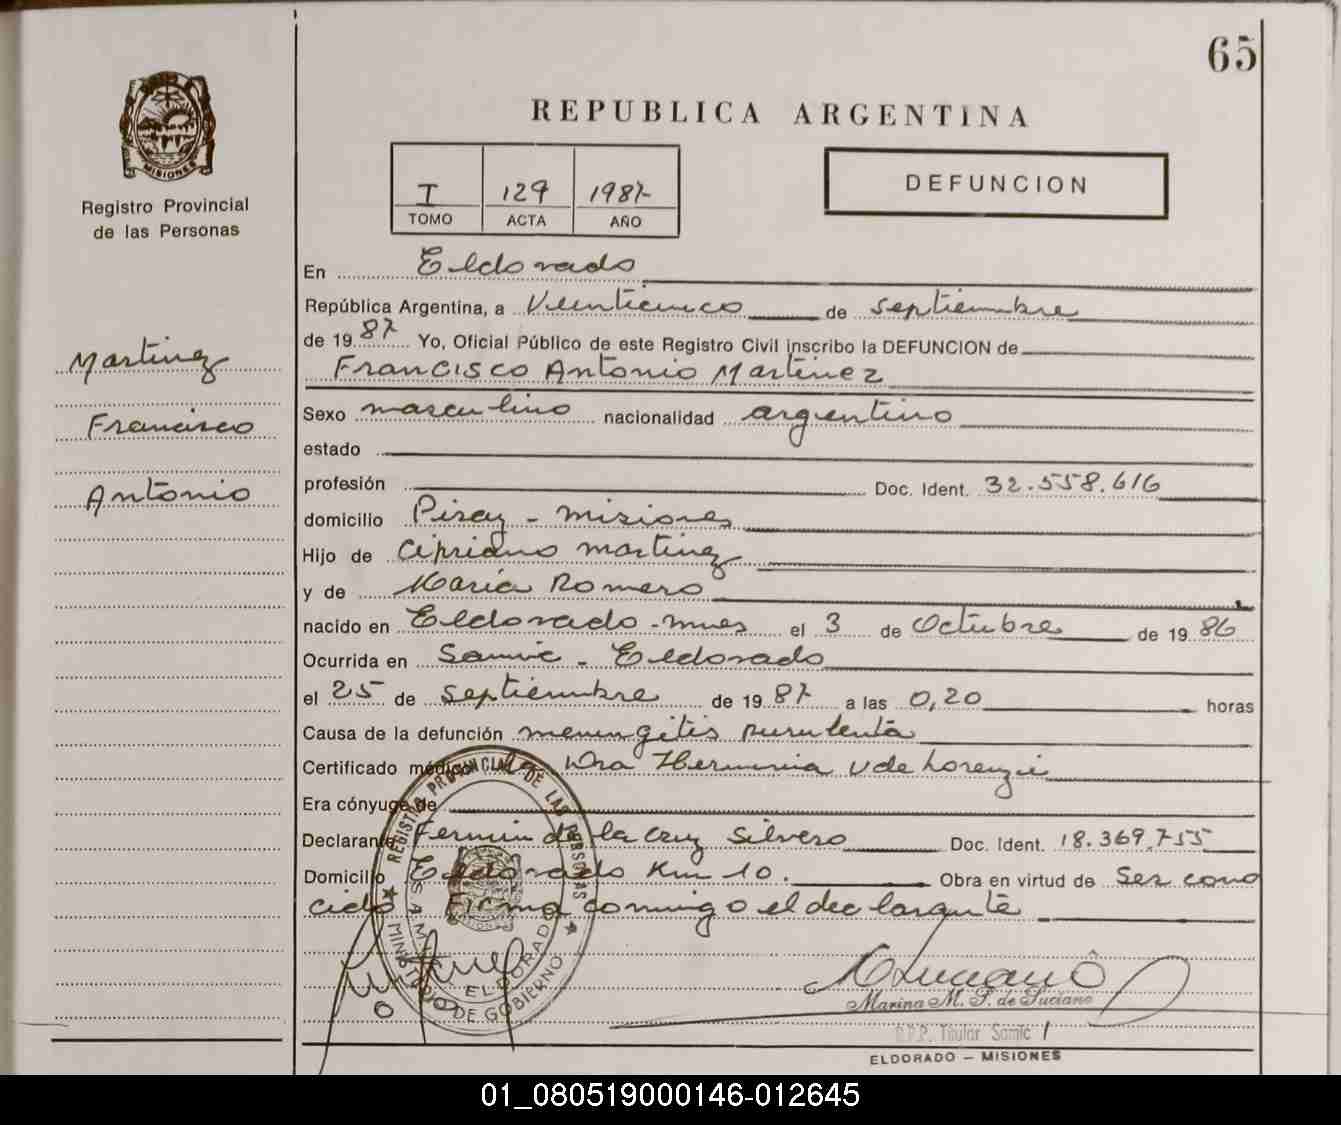 65
MISIONES
Registro Provincial
de las Personas
REPUBLICA ARGENTINA
I 129 1987
TOMO ACTA AÑO
DEFUNCION
Martinez
Francisco
Antonio
En Eldorado
República Argentina, a Veinticinco de septiembre
de 1987 Yo, Oficial Público de este Registro Civil inscribo la DEFUNCION de
Francisco Antonio Martinez
Sexo masculino nacionalidad argentino
estado
profesión Doc. Ident. 32.558.616
domicilio Piray - misiones
Hijo de Cipriano martinez
y de Maria Romero
nacido en Eldorado - mnes el 3 de Octubre de 1986
Ocurrida en Samic - Eldorado
el 25 de septiembre de 1987 a las 0,20 horas
Causa de la defunción meningitis purulenta
Certificado médico La Dra Herminia V de Lorenzi
Era cónyuge de
Declarante Fermin de la cruz Silvero Doc. Ident. 18.369.755
Domicilio Eldorado Km 10. Obra en virtud de Ser cono
cido Firma conmigo el declarante
REGISTRO PROVINCIAL DE LAS PERSONAS
SAMIC ELDORADO
MINISTERIO DE GOBIERNO
Marina M. P. de Luciano
Titular Samic
ELDORADO - MISIONES
01_080519000146-012645